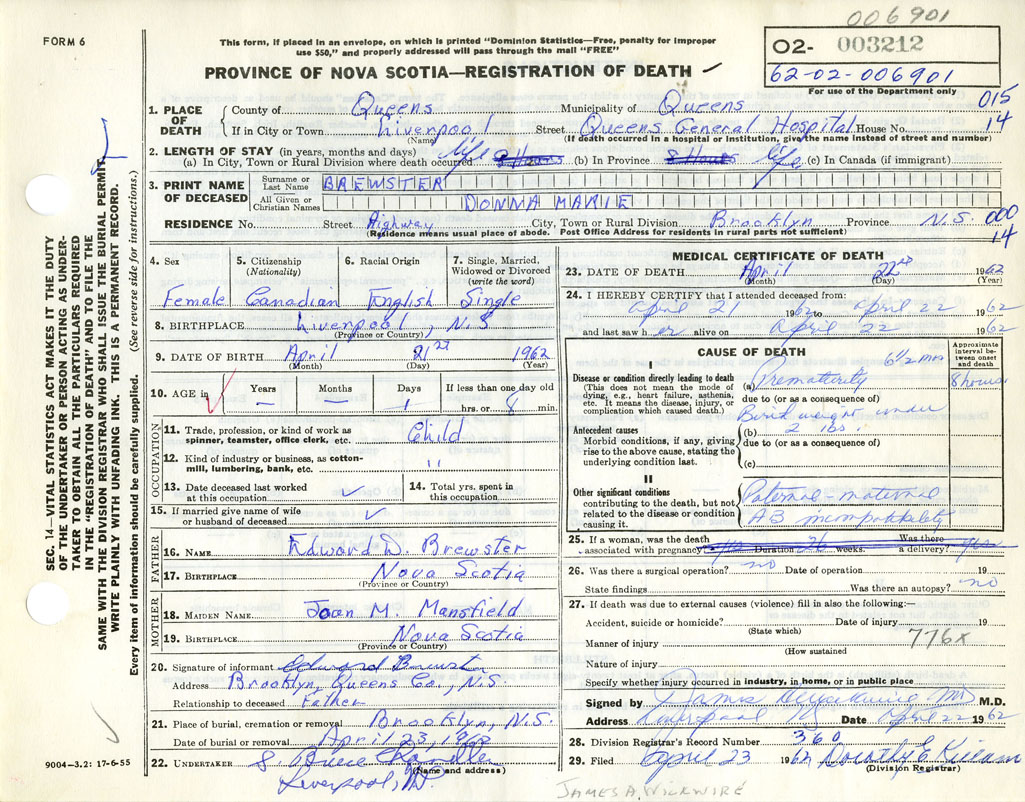 006901
FORM 6
This form, if placed in an envelope, on which is printed "Dominion Statistics—Free, penalty for improper
use $50," and properly addressed will pass through the mail "FREE"
PROVINCE OF NOVA SCOTIA—REGISTRATION OF DEATH ✓
02- 003212
62-02-006901
For use of the Department only
015
14
1. PLACE OF DEATH County of Queens Municipality of Queens
If in City or Town Liverpool Street Queens General Hospital House No.
(Name) (If death occurred in a hospital or institution, give the name instead of street and number)
2. LENGTH OF STAY (in years, months and days)
(a) In City, Town or Rural Division where death occurred life 8 Hours (b) In Province 8 Hours life (c) In Canada (if immigrant)
3. PRINT NAME OF DECEASED Surname or Last Name BREWSTER
All Given or Christian Names DONNA MARIE
RESIDENCE No. Street Highway City, Town or Rural Division Brooklyn Province N.S. 000
14
(Residence means usual place of abode. Post Office Address for residents in rural parts not sufficient)
4. Sex 5. Citizenship (Nationality) 6. Racial Origin 7. Single, Married, Widowed or Divorced (write the word)
Female Canadian English Single
8. BIRTHPLACE Liverpool, N.S
(Province or Country)
9. DATE OF BIRTH April 21st 1962
(Month) (Day) (Year)
10. AGE in Years Months Days If less than one day old
— — 1 hrs. or 8 min.
OCCUPATION
11. Trade, profession, or kind of work as
spinner, teamster, office clerk, etc. Child
12. Kind of industry or business, as cotton-
mill, lumbering, bank, etc. "
13. Date deceased last worked
at this occupation ✓
14. Total yrs. spent in
this occupation
15. If married give name of wife
or husband of deceased ✓
FATHER
16. NAME Edward D. Brewster
17. BIRTHPLACE Nova Scotia
(Province or Country)
MOTHER
18. MAIDEN NAME Joan M. Mansfield
19. BIRTHPLACE Nova Scotia
(Province or Country)
20. Signature of informant Edward Brewster
Address Brooklyn, Queens Co., N.S.
Relationship to deceased Father
21. Place of burial, cremation or removal Brooklyn, N.S.
Date of burial or removal April 23, 1962
22. UNDERTAKER
(Name and address)
Liverpool,
9004—3.2: 17-6-55
MEDICAL CERTIFICATE OF DEATH
23. DATE OF DEATH April 22nd 1962
(Month) (Day) (Year)
24. I HEREBY CERTIFY that I attended deceased from:
April 21 1962 to April 22 1962
and last saw her alive on April 22 1962
CAUSE OF DEATH
Approximate interval between onset and death
I
Disease or condition directly leading to death
(This does not mean the mode of
dying, e.g., heart failure, asthenia,
etc. It means the disease, injury, or
complication which caused death.)
6 1/2 mos
(a) Prematurity 8 hours
due to (or as a consequence of)
Antecedent causes
Morbid conditions, if any, giving
rise to the above cause, stating the
underlying condition last.
Birth weight under
(b) 2 lbs.
due to (or as a consequence of)
(c)
II
Other significant conditions
contributing to the death, but not
related to the disease or condition
causing it.
Paternal-maternal
AB incompatibility
25. If a woman, was the death Was there
associated with pregnancy? Duration 26 weeks. a delivery? yes
26. Was there a surgical operation? no Date of operation 19
State findings Was there an autopsy? no
27. If death was due to external causes (violence) fill in also the following:—
Accident, suicide or homicide? Date of injury 19
(State which)
Manner of injury 776x
(How sustained)
Nature of injury
Specify whether injury occurred in industry, in home, or in public place
Signed by James Wickwire MD M.D.
Address Liverpool NS Date April 22 1962
28. Division Registrar's Record Number 360
29. Filed April 23 1962 Dorothy E
(Division Registrar)
JAMES A. WICKWIRE
SEC. 14—VITAL STATISTICS ACT MAKES IT THE DUTY
OF THE UNDERTAKER OR PERSON ACTING AS UNDER-
TAKER TO OBTAIN ALL THE PARTICULARS REQUIRED
IN THE "REGISTRATION OF DEATH" AND TO FILE THE
SAME WITH THE DIVISION REGISTRAR WHO SHALL ISSUE THE BURIAL PERMIT.
WRITE PLAINLY WITH UNFADING INK. THIS IS A PERMANENT RECORD.
Every item of information should be carefully supplied. (See reverse side for instructions.)